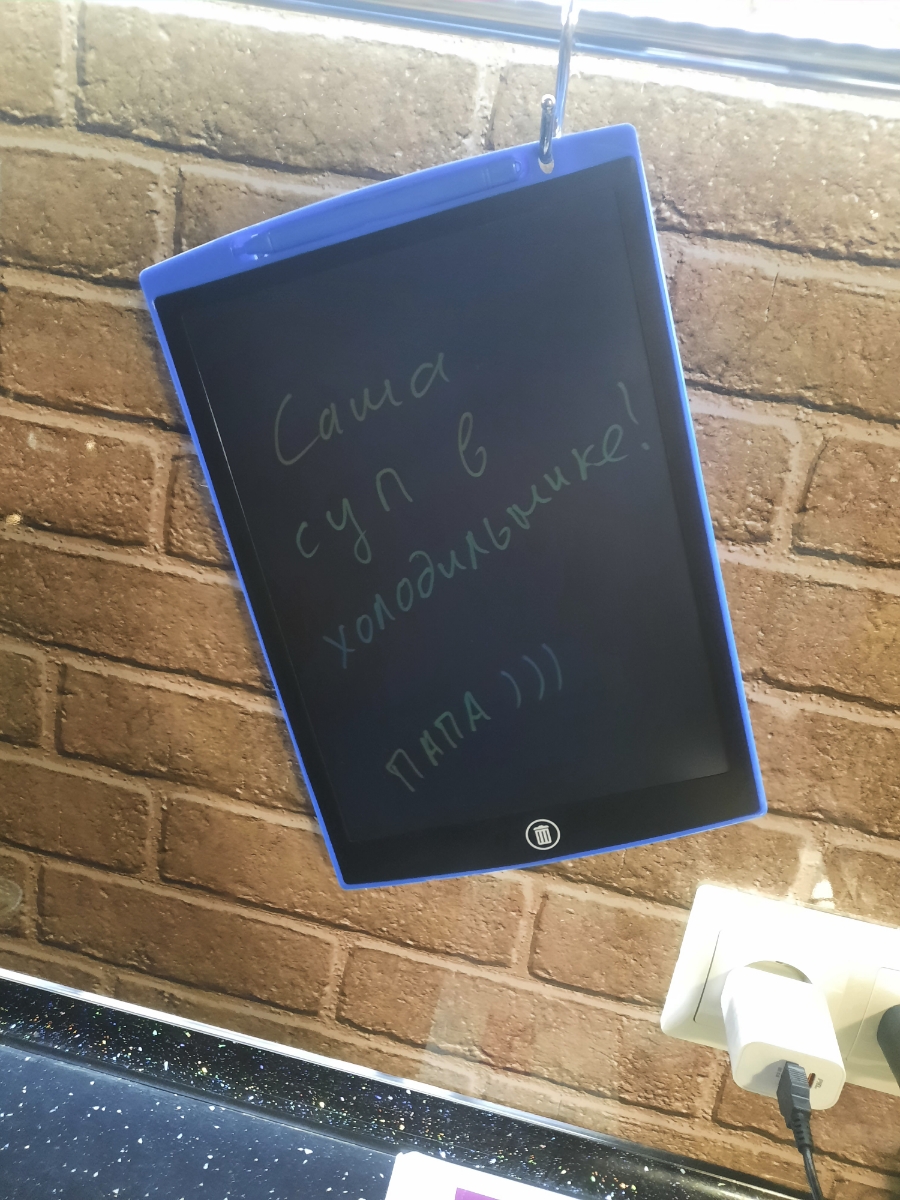 Саша
суп в
холодильнике!
ПАПА )))